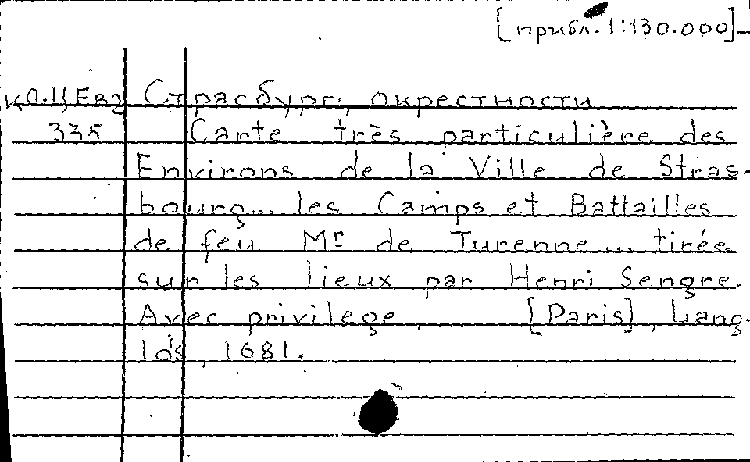 [прибл. 1:130.000]
КО.Ц.Ев2 Страсбург, окрестности
335 Carte très particulière des
Environs de la Ville de Stras-
bourg... les Camps et Battailles
de feu Mr de Turenne... tirée
sur les lieux par Henri Sengre.
Avec privilege, [Paris], Lang-
lois, 1681.